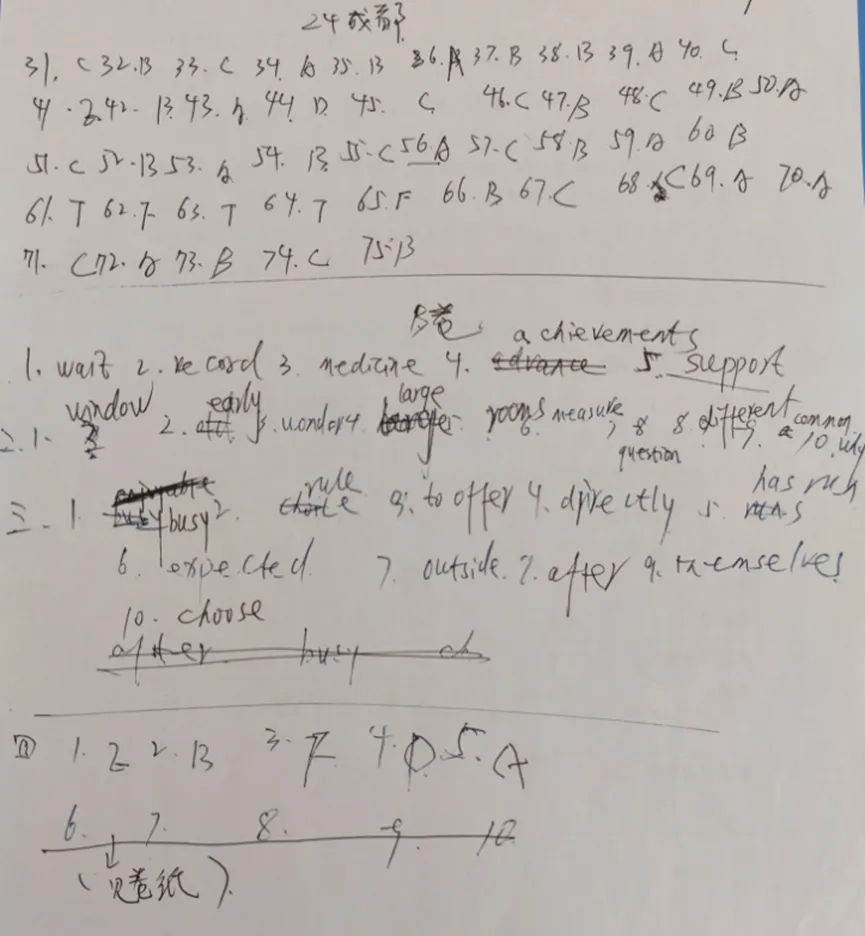 24成都
31. C 32.B 33. C 34. A 35. B 36. A 37. B 38. B 39. A 40. C
41. 42. B 43. A 44. D 45. C 46. C 47. B 48. C 49. B 50. A
51. C 52. B 53. A 54. B 55. C 56. A 57. C 58. B 59. A 60 B
61. T 62. F 63. T 64. T 65. F 66. B 67. C 68. C 69. A 70. A
71. C 72. A 73. B 74. C 75. B
B卷
1. wait 2. record 3. medicine 4. achievements 5. support
二.1. window 2. early 3. wonder 4. large rooms 6. measure 7 question 8. different 9. a common 10. why
三.1 busy 2. rule 3. to offer 4. directly 5. has rich
6. expected 7. outside. 7. after 9. themselves
10. choose
after busy ch
四 1. E 2. B 3. F 4. D. 5. A
6. 7. 8. 9. 10
(见卷纸).